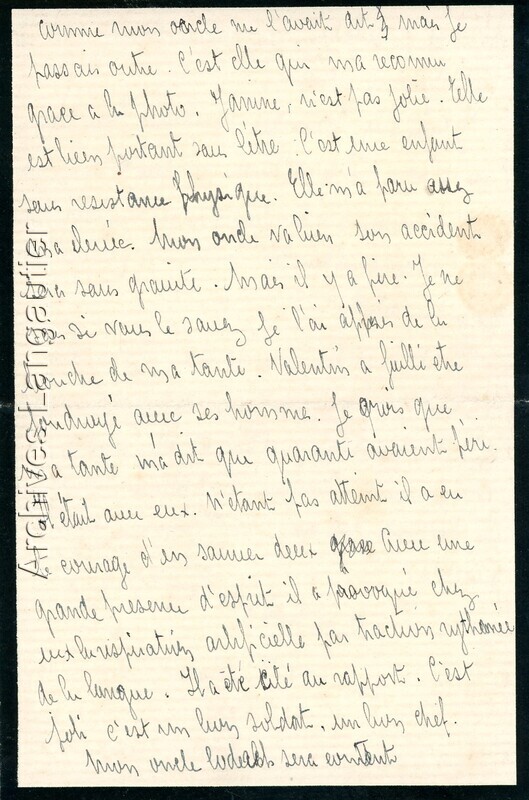 comme mon oncle me l'avait dit mais je
passais outre. C'est elle qui m'a reconnu
grace a la photo. Janine, n'est pas jolie. Elle
est bien portant sans l'être. C'est une enfant
sans resistance physique. Elle m'a paru assez
Mon oncle son accident
sera sans gravite. Mais il y a pire. Je ne
sais si vous le savez je l'ai appris de la
bouche de ma tante. Valentin a failli etre
foudroyé avec ses hommes. Je crois que
ma tante m'a dit que quarante avaient péri.
Il était avec eux. N'étant pas atteint il a eu
le courage d'en sauver deux Avec une
grande presence d'esprit il a provoqué chez
eux la respiration artificielle par traction rythmée
de la langue. Il a été cité au rapport. C'est
joli c'est un bon soldat, un bon chef.
Mon oncle sera content
Archivesst-angaulier